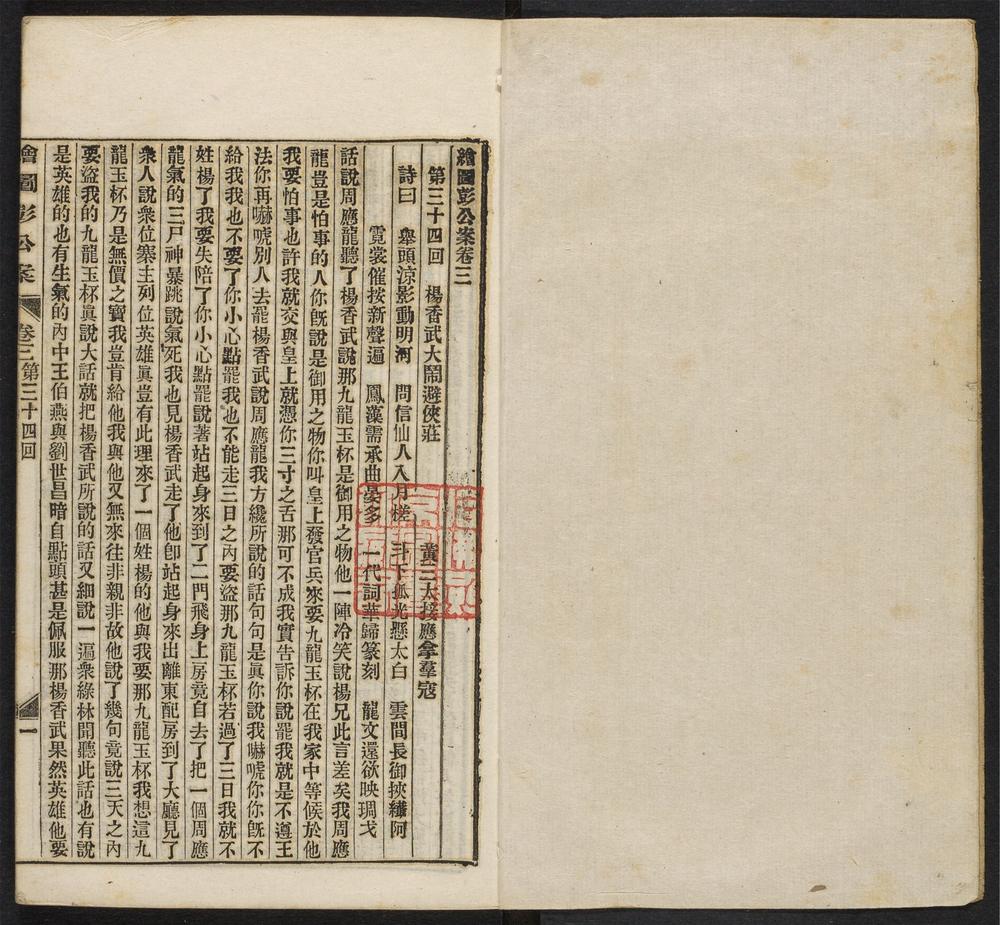 繪圖彭公案卷三
第三十四回 楊香武大鬧避俠莊 黃三太接應拿羣寇
詩曰 舉頭涼影動明河 問信仙人入月槎 斗下孤光懸太白 雲間長御挾纖阿
霓裳催按新聲遍 鳳藻需承曲宴多 一代詞華歸篆刻 龍文還欲映琱戈
話說周應龍聽了楊香武說那九龍玉杯是御用之物他一陣冷笑說楊兄此言差矣我周應
龍豈是怕事的人你旣說是御用之物你叫皇上發官兵來要九龍玉杯在我家中等候於他
我要怕事也許我就交與皇上就憑你三寸之舌那可不成我實告訴你說罷我就是不遵王
法你再嚇唬別人去罷楊香武說周應龍我方纔所說的話句句是眞你說我嚇唬你你旣不
給我我也不要了你小心點罷我也不能走三日之內要盜那九龍玉杯若過了三日我就不
姓楊了我要失陪了你小心點罷說著站起身來到了二門飛身上房竟自去了把一個周應
龍氣的三尸神暴跳說氣死我也見楊香武走了他卽站起身來出離東配房到了大廳見了
衆人說衆位寨主列位英雄眞豈有此理來了一個姓楊的他與我要那九龍玉杯我想這九
龍玉杯乃是無價之寶我豈肯給他我與他又無來往非親非故他說了幾句竟說三天之內
要盜我的九龍玉杯眞說大話就把楊香武所說的話又細說一遍衆綠林聞聽此話也有說
是英雄的也有生氣的內中王伯燕與劉世昌暗自點頭甚是佩服那楊香武果然英雄他要
繪圖彭公案 卷三第三十四回 一